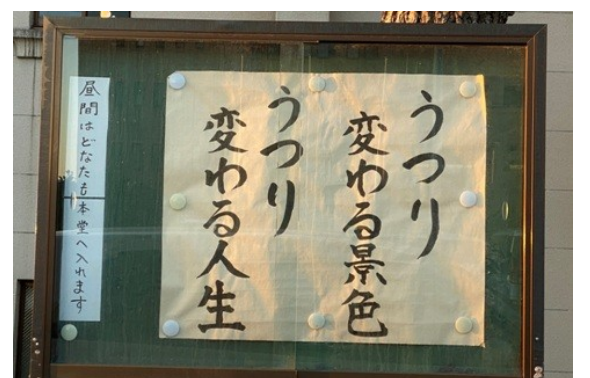 うつり
変わる景色
うつり
変わる人生
昼間はどなたも本堂へ入れます